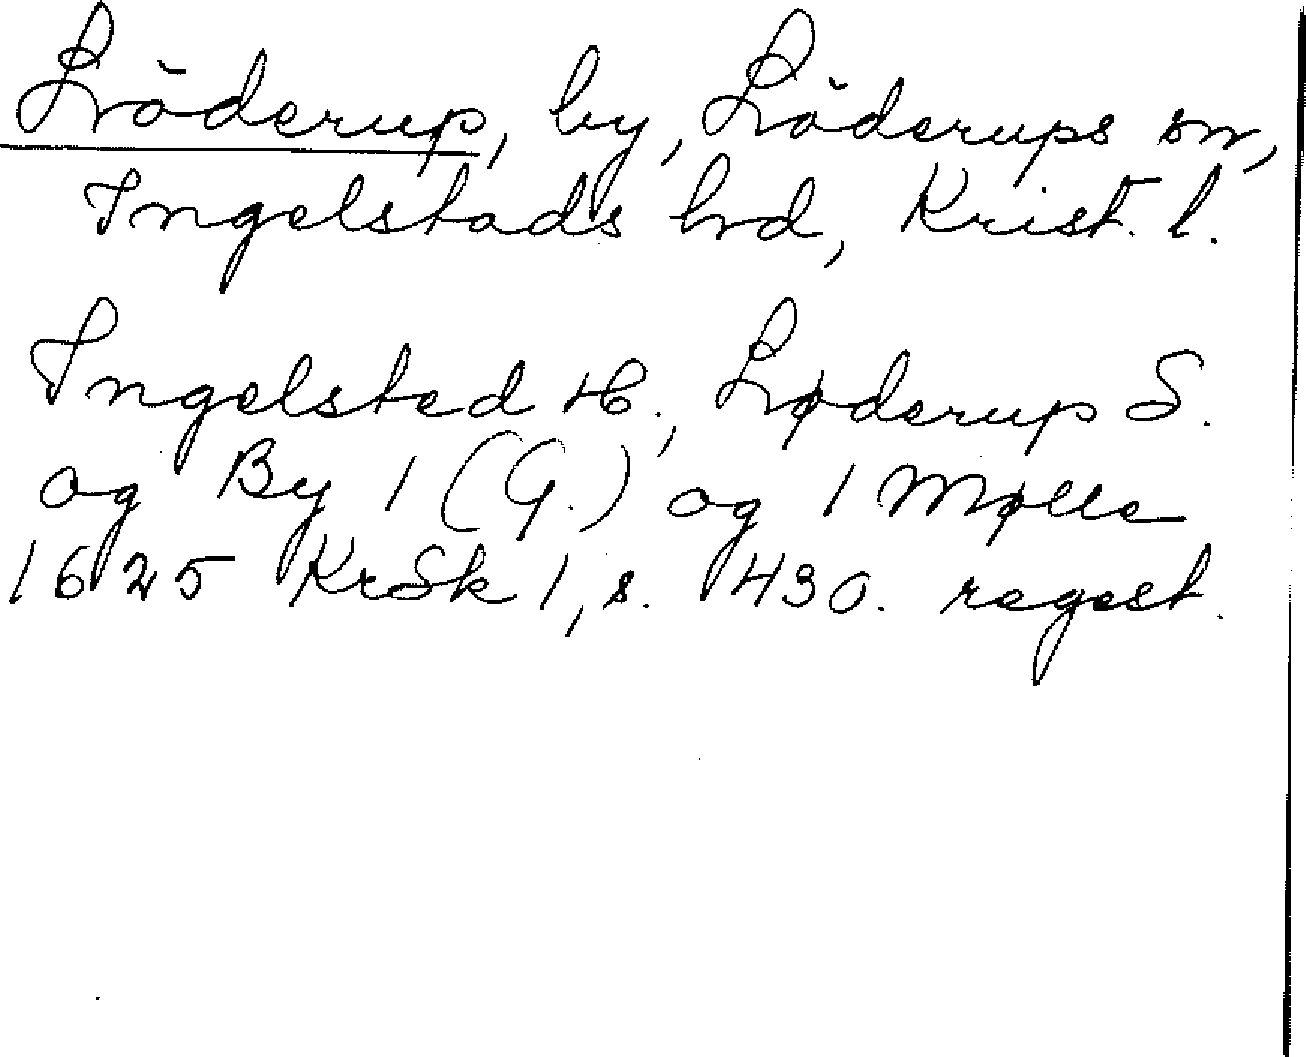 Löderup, by, Löderups sn,
Ingelstads hd, Krist. l.
Ingelsted H., Løderup S.
og By 1 (G.) og 1 Mølle
1625 KrSk 1, s. 430. regest.